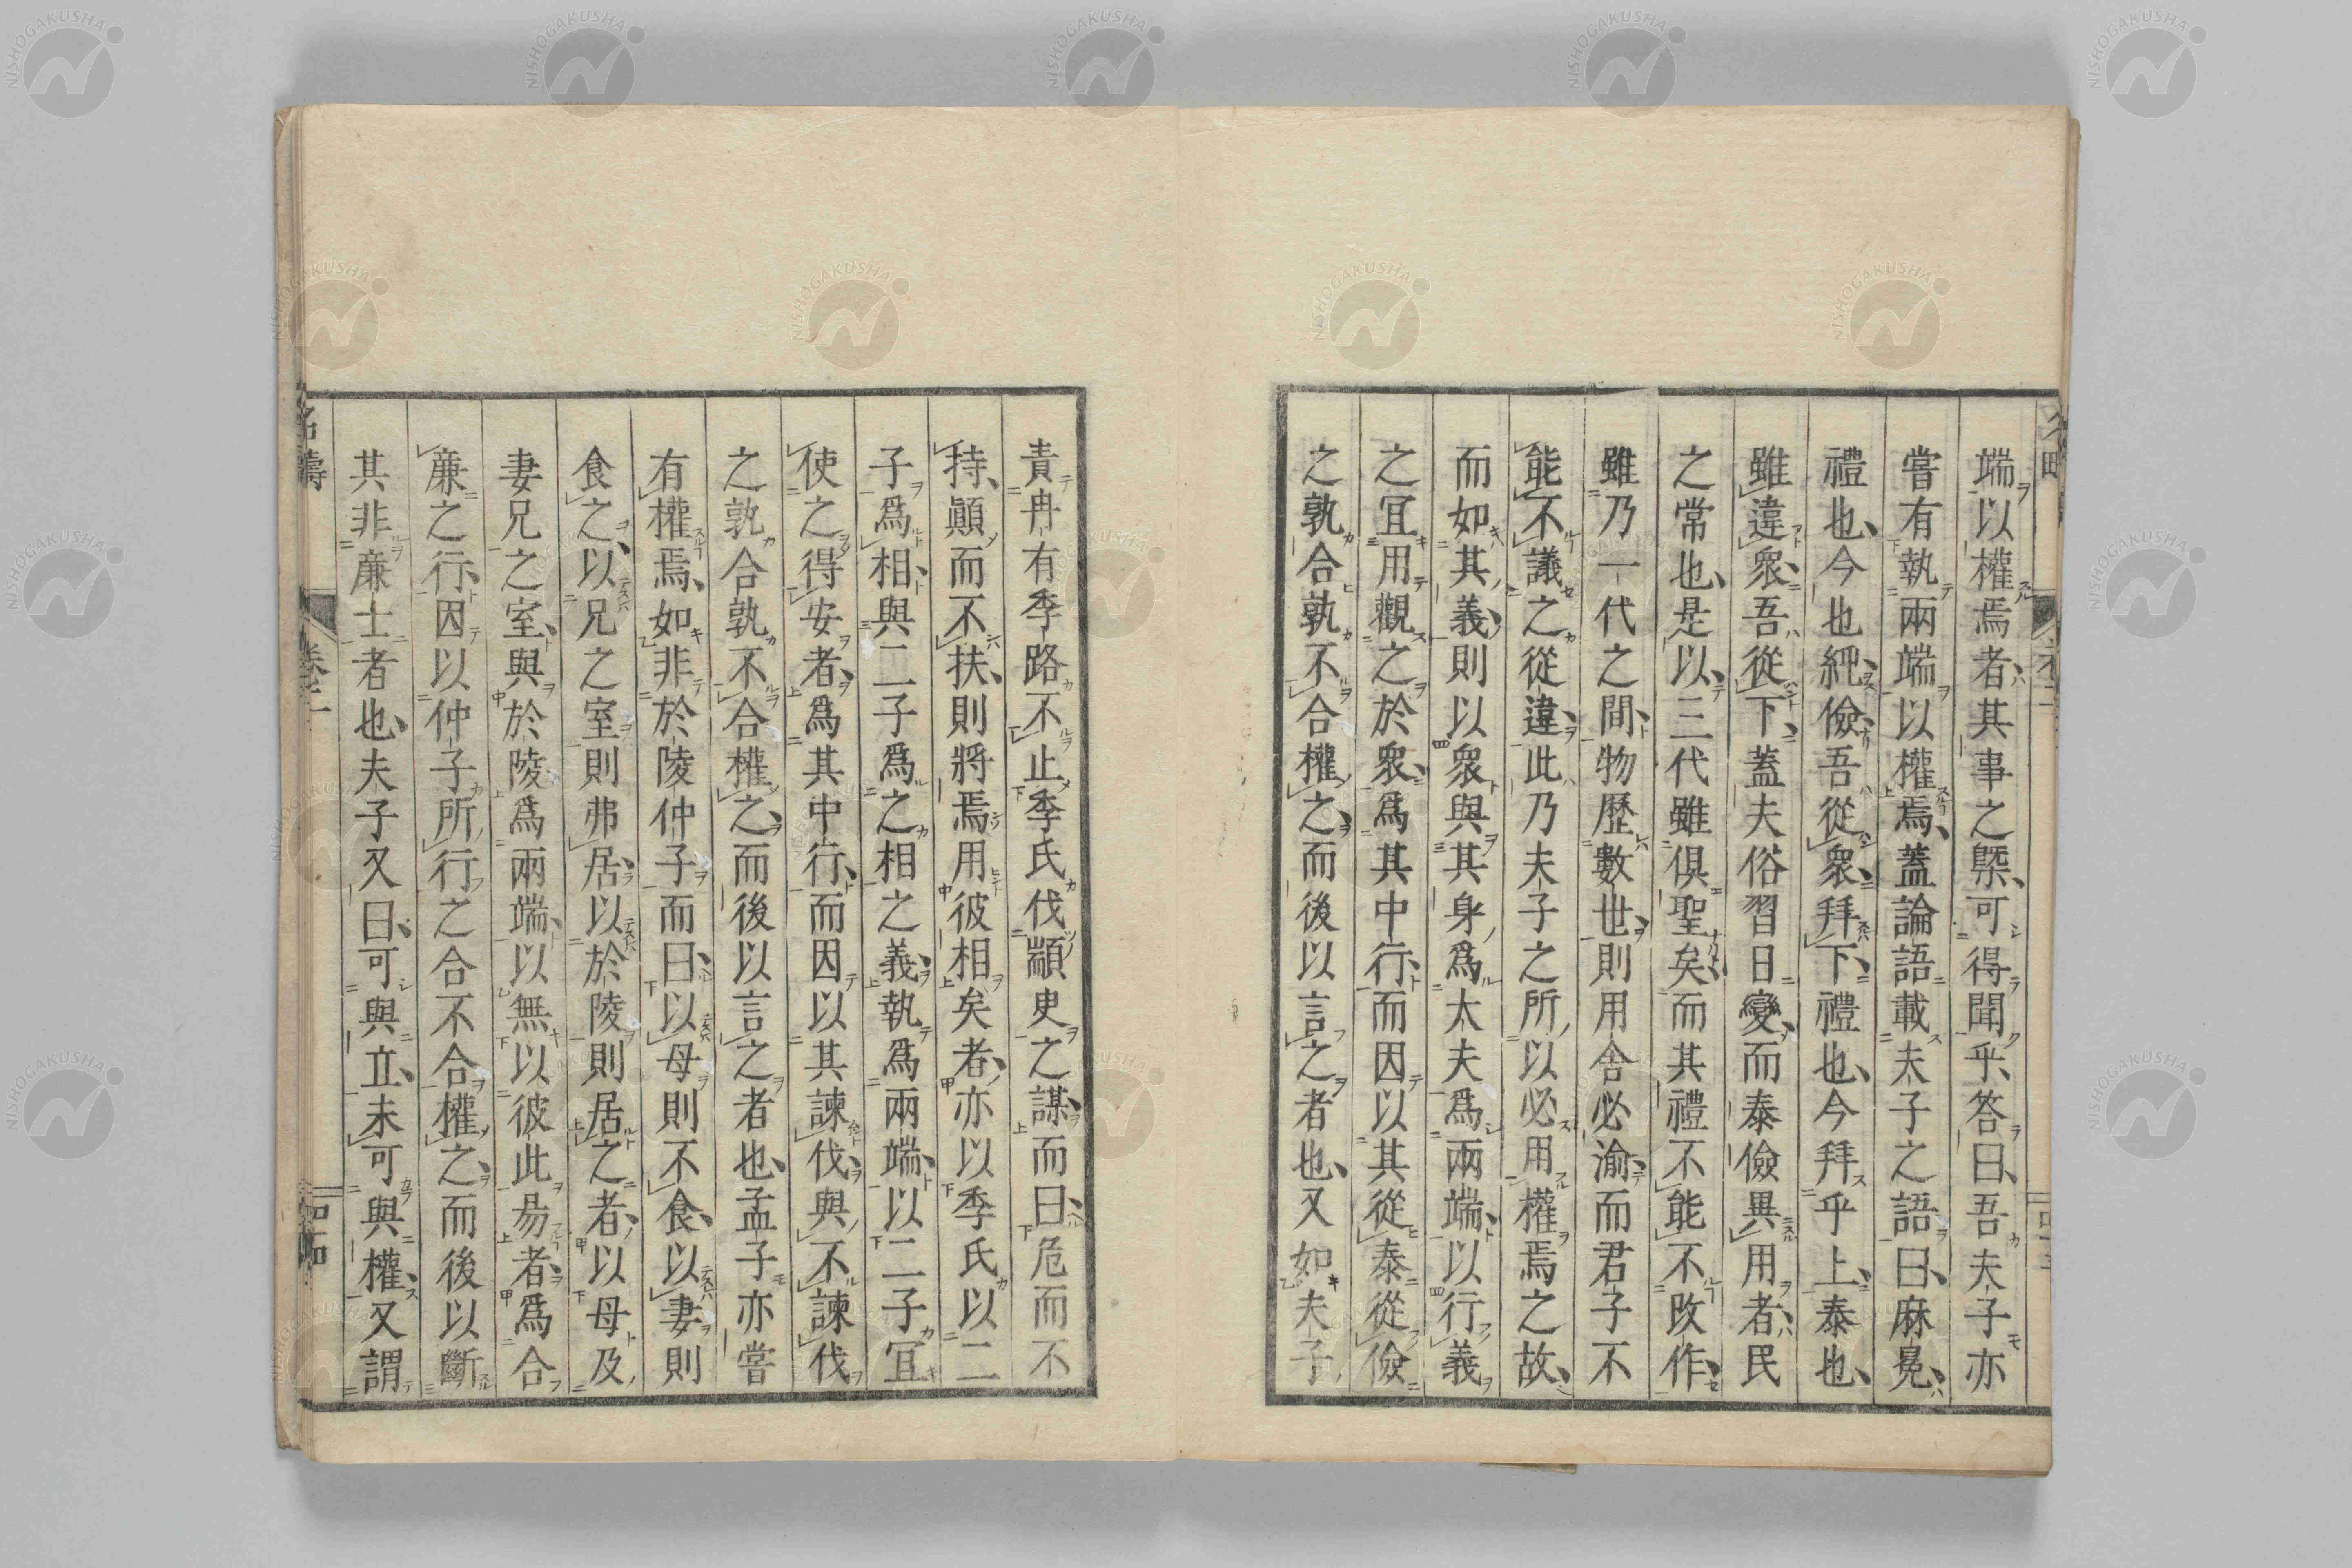 端以權焉者其事之槩可得聞乎答曰吾夫子亦
嘗有執兩端以權焉蓋論語載夫子之語曰麻冕
禮也今也純儉吾從衆拜下禮也今拜乎上泰也
雖違衆吾從下蓋夫俗習日變而泰儉異用者民
之常也是以三代雖俱聖矣而其禮不能不改作
雖乃一代之間物歷數世則用舍必渝而君子不
能不議之從違此乃夫子之所以必用權焉之故
而如其義則以衆與其身爲大夫爲兩端以行義
之冝用觀之於衆爲其中行而因以其從泰從儉
之孰合孰不合權之而後以言之者也又如夫子
責冉有季路不止季氏伐顓叟之謀而曰危而不
持顚而不扶則將焉用彼相矣者亦以季氏以二
子爲相與二子爲之相之義執爲兩端以二子冝
使之得安者爲其中行而因以其諫伐與不諫伐
之孰合孰不合權之而後以言之者也孟子亦嘗
有權焉如非於陵仲子而曰以母則不食以妻則
食之以兄之室則弗居以於陵則居之者以母及
妻兄之室與於陵爲兩端以無以彼此易者爲合
廉之行因以仲子所行之合不合權之而後以斷
其非廉士者也夫子又曰可與立未可與權又謂
NISHOGAKUSHA